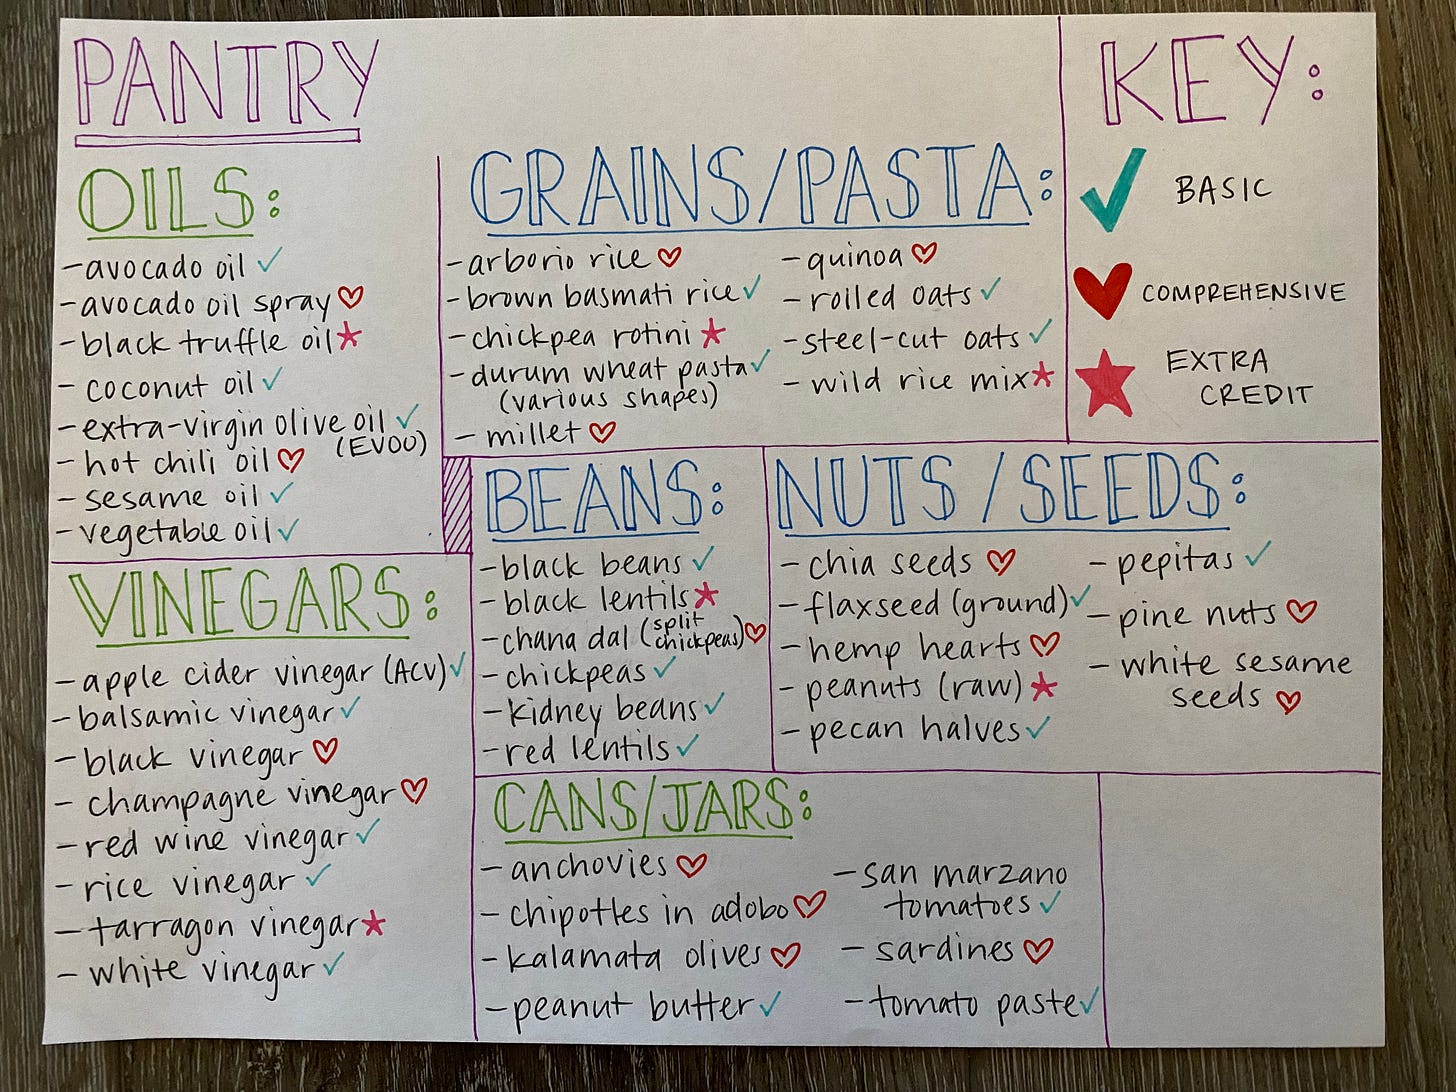 PANTRY
OILS:
-avocado oil ✓
-avocado oil spray ♡
-black truffle oil ★
-coconut oil ✓
-extra-virgin olive oil ✓
(EVOO)
-hot chili oil ♡
-sesame oil ✓
-vegetable oil ✓
VINEGARS:
-apple cider vinegar (ACV) ✓
-balsamic vinegar ✓
-black vinegar ♡
-champagne vinegar ♡
-red wine vinegar ✓
-rice vinegar ✓
-tarragon vinegar ★
-white vinegar ✓
GRAINS/PASTA:
-arborio rice ♡
-brown basmati rice ✓
-chickpea rotini ★
-durum wheat pasta ✓
(various shapes)
-millet ♡
-quinoa ♡
-rolled oats ✓
-steel-cut oats ✓
-wild rice mix ★
KEY:
✓ BASIC
♥ COMPREHENSIVE
★ EXTRA
CREDIT
BEANS:
-black beans ✓
-black lentils ★
-chana dal (split
chickpeas) ♡
-chickpeas ✓
-kidney beans ✓
-red lentils ✓
NUTS/SEEDS:
-chia seeds ♡
-flaxseed (ground) ✓
-hemp hearts ♡
-peanuts (raw) ★
-pecan halves ✓
-pepitas ✓
-pine nuts ♡
-white sesame
seeds ♡
CANS/JARS:
-anchovies ♡
-chipotles in adobo ♡
-kalamata olives ♡
-peanut butter ✓
-san marzano
tomatoes ✓
-sardines ♡
-tomato paste ✓